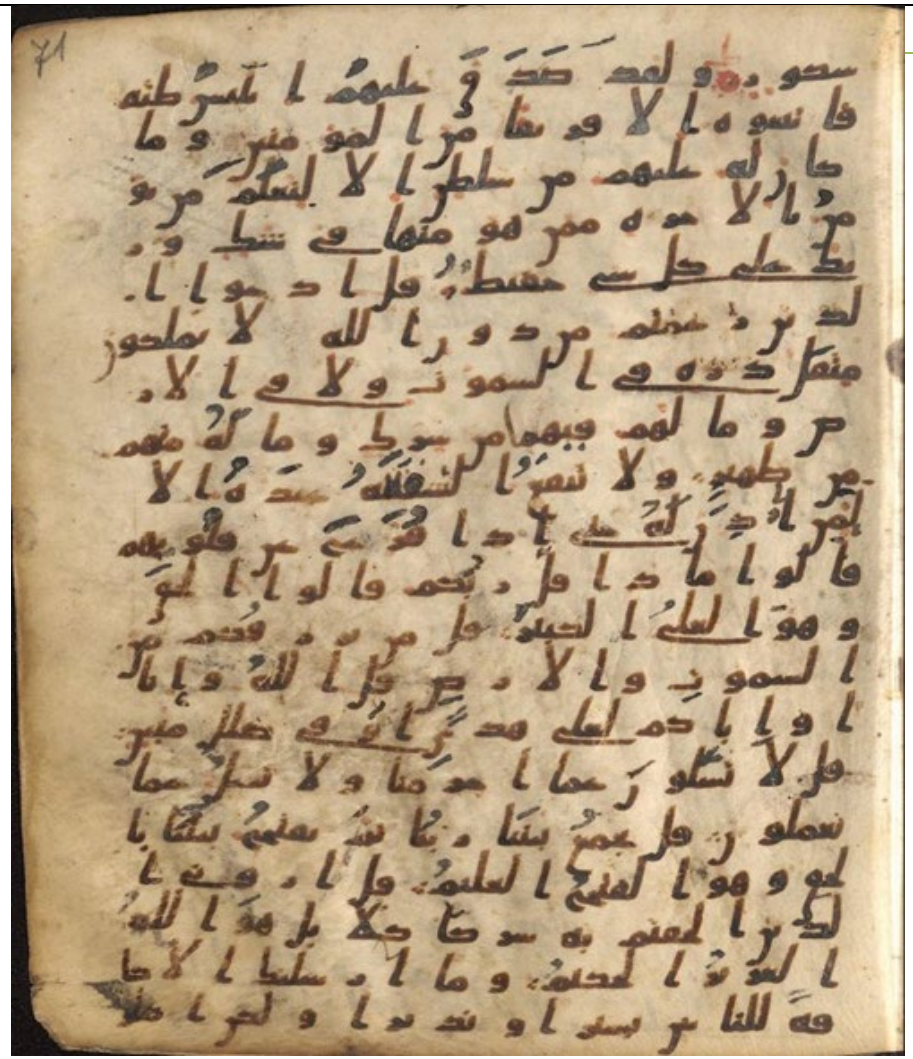 71
شكور ولقد صدق عليهم ابليس ظنه
فاتبعوه الا فريقا من المومنين وما
كان له عليهم من سلطن الا لنعلم من يو
من بالاخره ممن هو منها في شك ور
بك على كل شي حفيظ قل ادعوا ا
لذين زعمتم من دون الله لا يملكون
مثقل ذره في السموت ولا في الار
ض وما لهم فيهما من شرك وما له منهم
من ظهير ولا تنفع الشفعه عنده الا
لمن اذن له حتى اذا فزع عن قلوبهم
قالوا ماذا قل ربكم قالوا الحق
وهو العلى الكبير قل من يرزقكم من
السموت والارض قل الله وانا
او اياكم لعلى هدى او في ضلل مبين
قل لا تسلون عما اجرمنا ولا نسل عما
تعملون قل يجمع بيننا ربنا ثم يفتح بيننا با
لحق وهو الفتح العليم قل اروني ا
لذين الحقتم به شركا كلا بل هو الله
العزيز الحكيم وما ارسلنك الا كا
فه للناس بشيرا ونذيرا ولكن اكثر